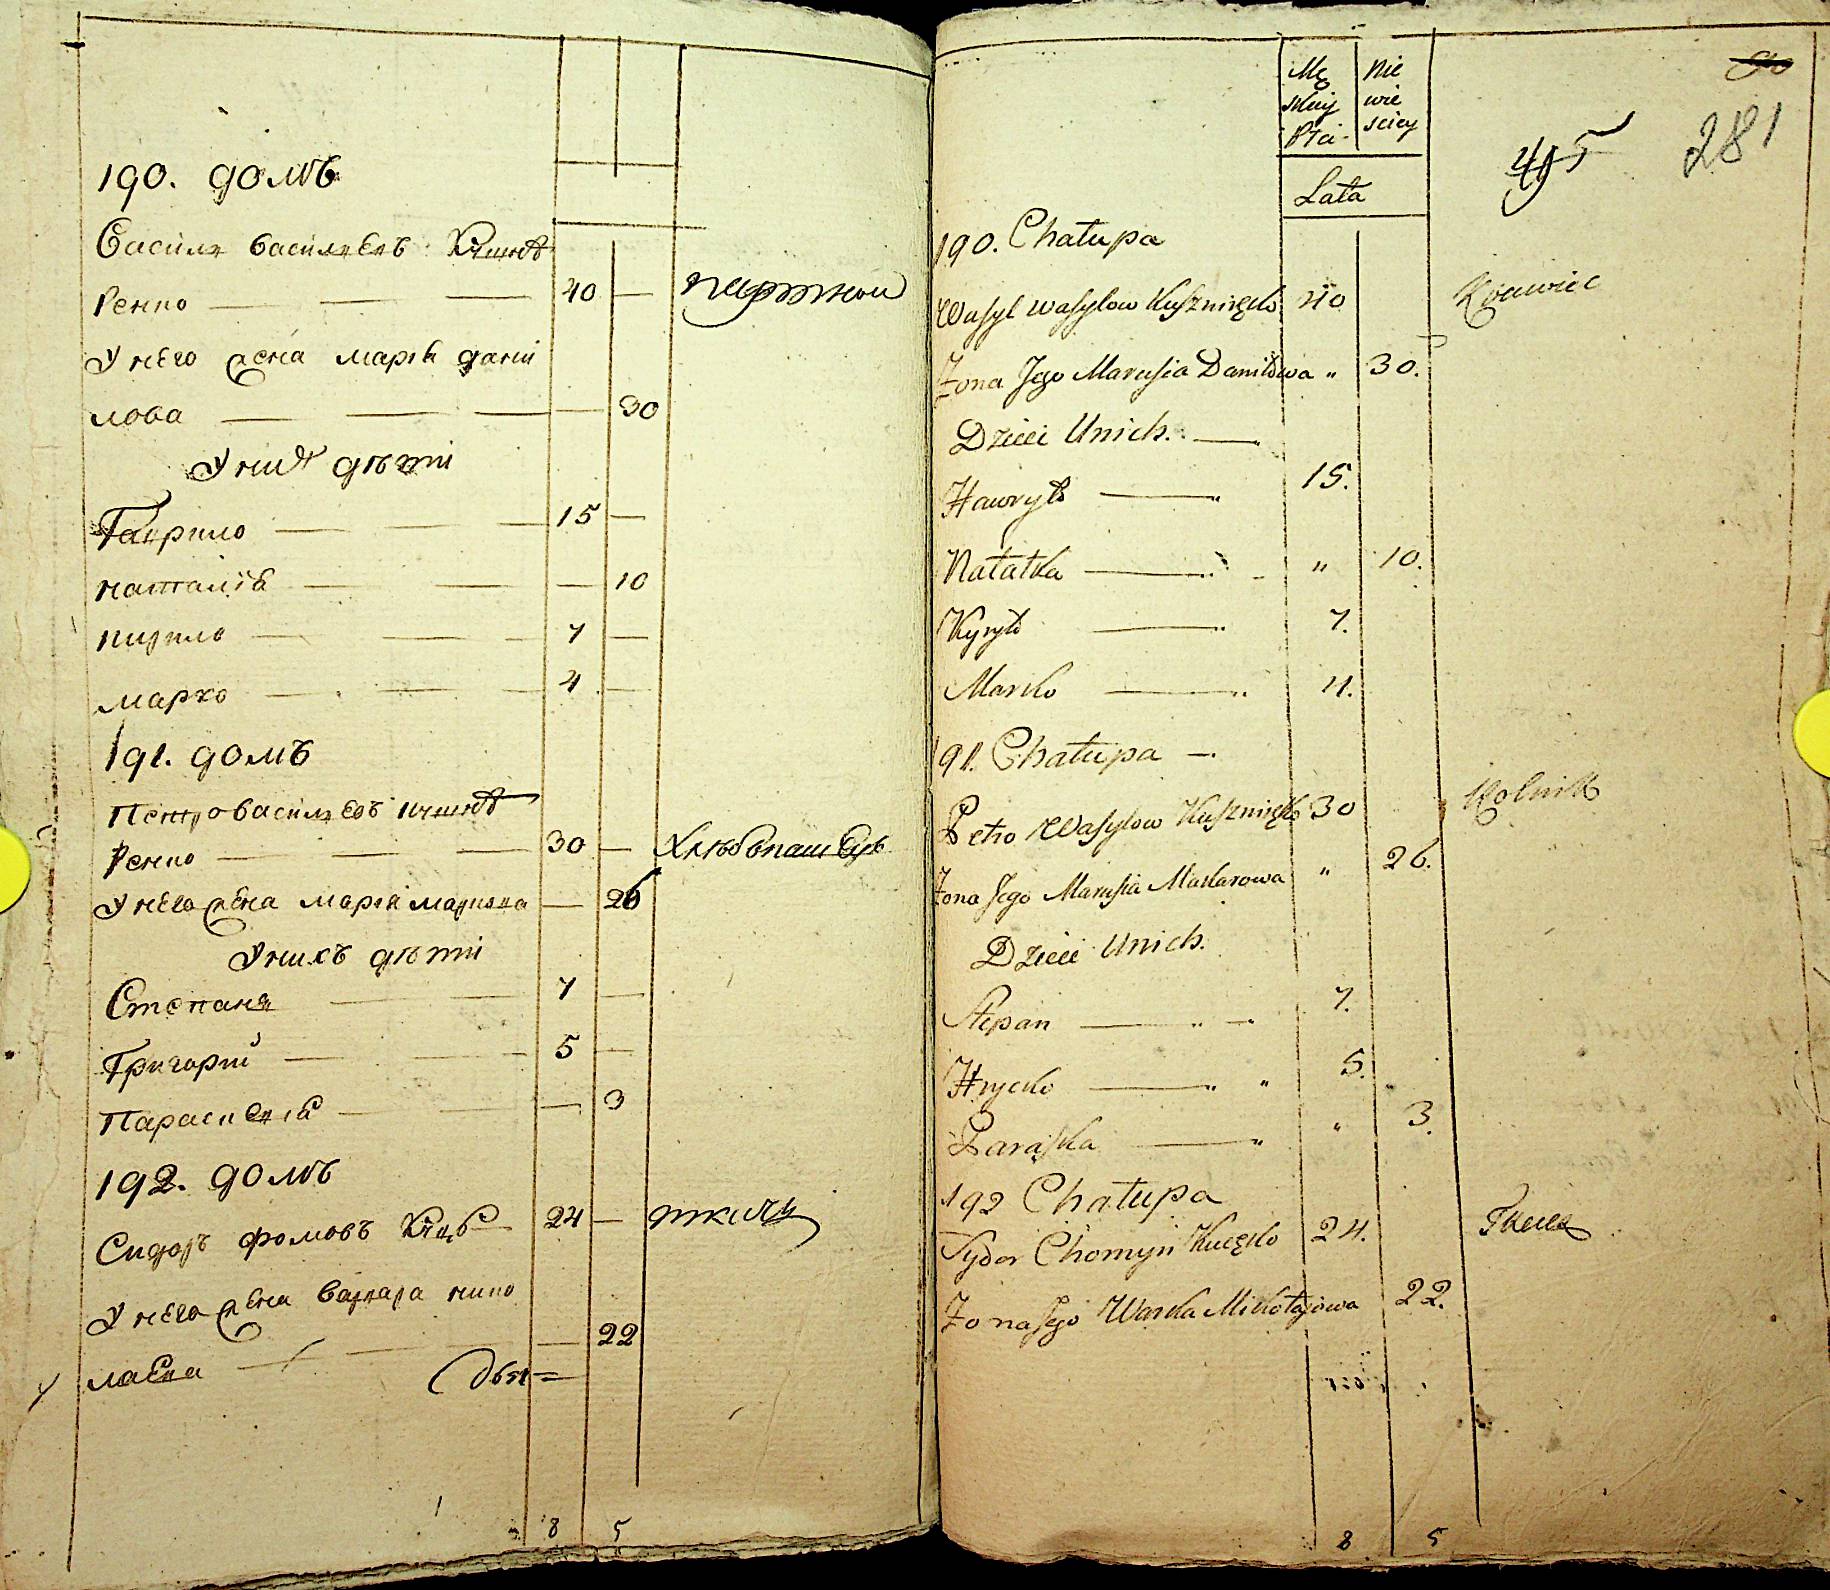 190. домъ
Василя васильевъ Кушнѣ
ренко — — — 40 — портной
У него жена марія дани
лова — — — — 30
У них дѣти
Гаврило — — — 15 —
наталія — — — 10
кирило — — — 7 —
марко — — — 4 —
191. домъ
Петро васильевъ кушнѣ
ренко — — — 30 — хлѣбопашецъ
У него жена марія маркова — 26
У нихъ дѣти
Степанъ — — 7 —
Григорий — — 5 —
Параскевія — — — 3
192. домъ
Сидоръ фомовъ — 24 — ткачь
У него жена варвара нико
лаева — — — 22
8 5
Mę
skiey
Płci
Nie
wie
sciey
495
281
Lata
190. Chałupa
Wasyl Wasylow Kuszniręko 40 Krawiec
Żona Jego Marusia Daniłowa " 30.
Dzieci Unich. —
Hawryło — " 15.
Natałka — " 10.
Kyryło — 7.
Marko — 4.
191. Chałupa —
Petro Wasylow Kuszniręko 30 Rolnik
Żona Jego Marusia Markowa " 26.
Dzieci Unich.
Stepan — " — 7.
Hrycko — " " 5.
Paraska — " " 3.
192 Chałupa
Sydor Chomyn Kucęko 24. Tkacz
Żona Jego Warka Mikołajowa 22.
8 5